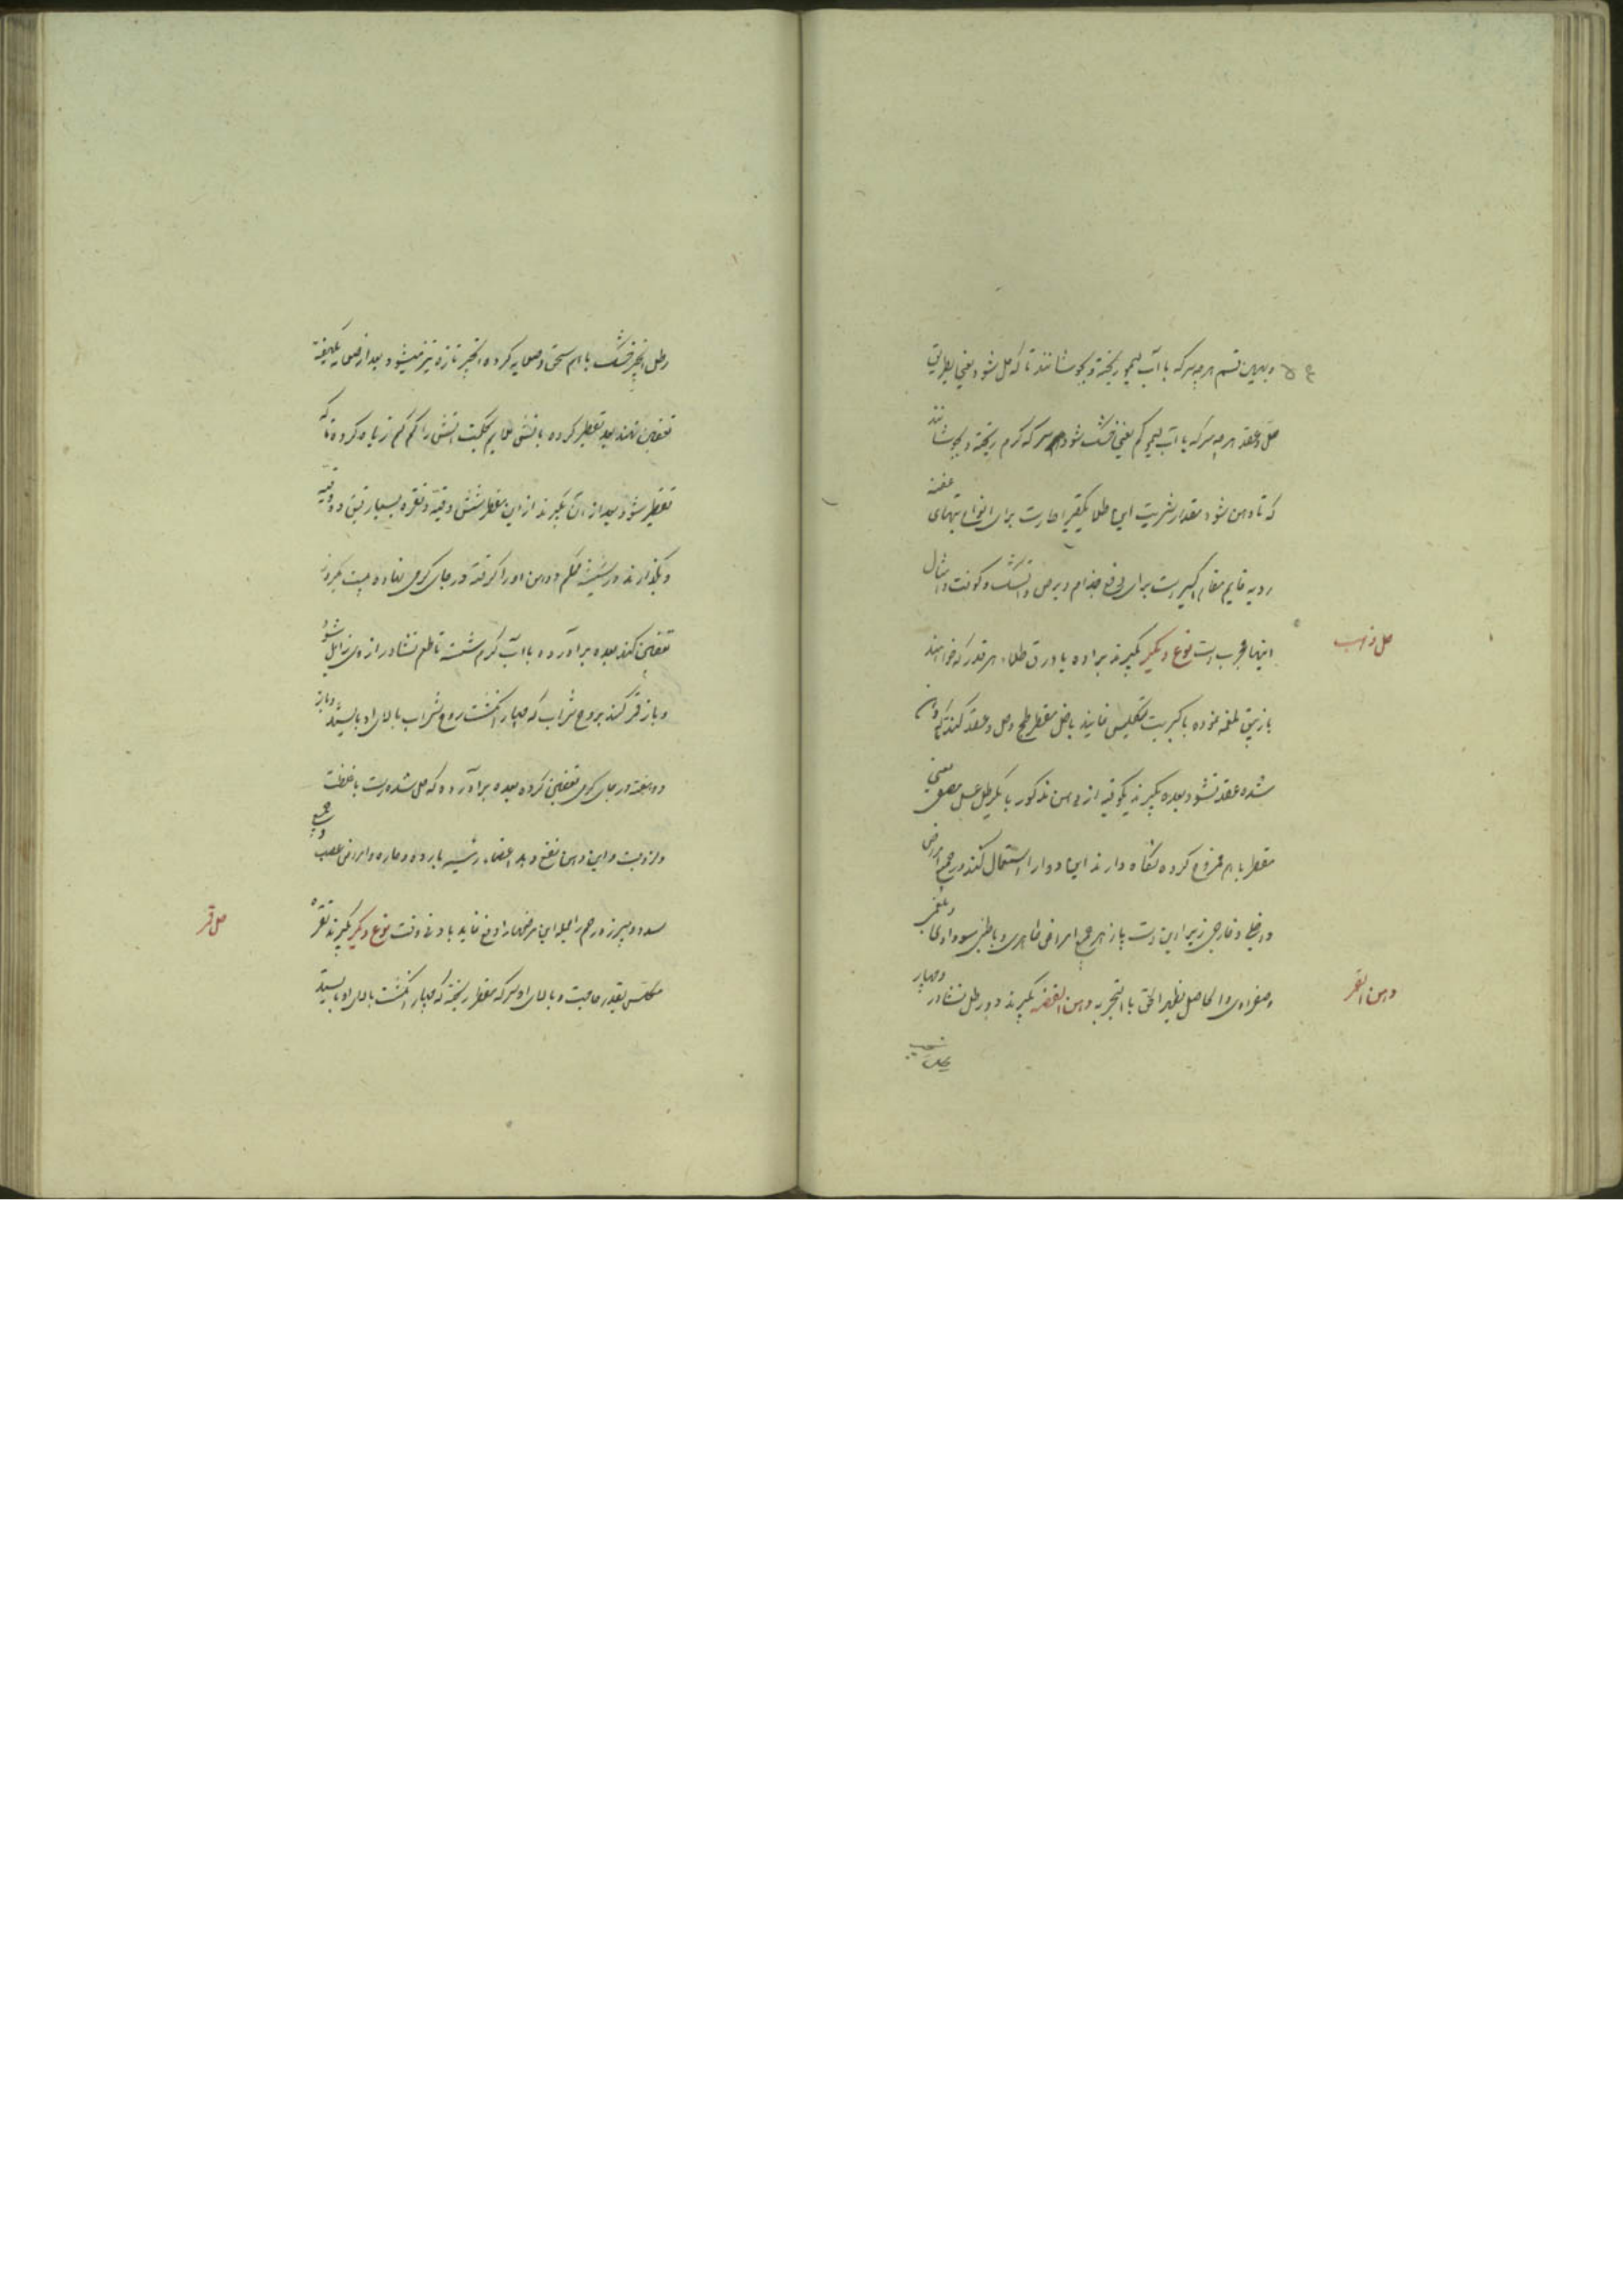 وبهمین قسم هرچه سرکه یا آب لیمو ریخته و بجوشانند تا که حل شود یعنی بطریق
حل و عقد هرچه سرکه یا آب لیمو کم یعنی خشک شود سرکه گرم ریخته و بجوشانند
که تا دهن شود مقدار شربت این طلا یکقیراط است برای انواع تبهای عفنه
ردیه قایم مقام اکسیر است برای دفع جذام و برص و آتشک و کوفت و امثال
حل ذهب
اینها مجرب است نوع دیگر بگیرند براده یا ورق طلا هر قدر که خواهند
با زیبق ملغمه نموده با کبریت تکلیس نمایند با خل مقطر طبخ و حل و عقد کنند که
شده عقد نشود بعده بگیرند یکوقیه از دهن مذکور با یکرطل عسل مصفی یعنی
مقطر باهم ممزوج کرده نگاه دارند این دوا را استعمال کنند در جمیع امراض
داخلی و خارجی زیرا این است پازهر جمیع امراض ظاهری و باطنی سوداوی و بلغمی
دهن القمر
وصفراوی والحاصل بالتجربه دهن الفضه بگیرند دو رطل نشادر و چهار
رطل خشک باهم سحق و صلایه کرده تازه تیز میشود بعد از صلایه یکهفته
تعفین نهند بعد تقطیر کرده باتش ملایم بحکمت اتش را کم کم زیاده کرده تا که
تقطیر شود بعد از آن بگیرند از این مقطر شش وقیه و نقره بسیار رقیق دو وقیه
و بگذارند در شیشه محکم و دهن او را گرفته در جای گرمی نهاده بیست یکروز
تعفین کنند بعده برآورده با آب گرم شسته تا طعم نشادر از وی زایل شود
و باز تر کنند بروح شراب که چهار انگشت روح شراب بالای او بایستد و باز
دو هفته در جای گرمی تعفین کرده بعده برآورده که حل شده است با غلظت
ولزوجت و این دهن نفع دهد اعضاء رئیسه بارده و حاره و امراض عصب
حل قمر
سده و سپرز و رحم را جمله این مرضها را دفع نماید باذن وقت نوع دیگر بگیرند نقره
مکلس بقدر حاجت و بالای او سرکه مقطر ریخته که چهار انگشت بالای او بایستد